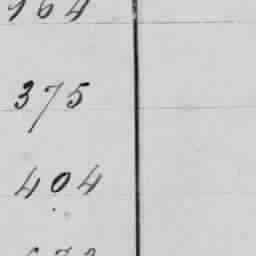 164
375
404